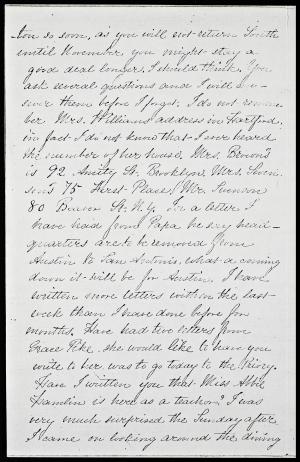 ton so soon, as you will not return South
until November, you might stay a
good deal longer, I should think. You
ask several questions and I will an-
swer them before I forget. I do not remem-
ber Mrs. Williams address in Hartford,
in fact I do not know that I ever heard
the number of her house. Mrs. Brown's
is 92. Amity St. Brooklyn, Mrs.
75 First Place, Mr.
80 St. N.Y. In a letter I
have had from Papa he says head-
quarters are to be removed from
Austin to San Antonio, what a coming
down it will be for Austin. I have
written more letters within the last
week than I have done before for
months. Have had two letters from
Grace Pike, she would like to have you
write to her, was to go today to the
Have I written you that Miss Abbie
Hamlin is here as a teacher? I was
very much surprised the Sunday after
I came on looking around the dining